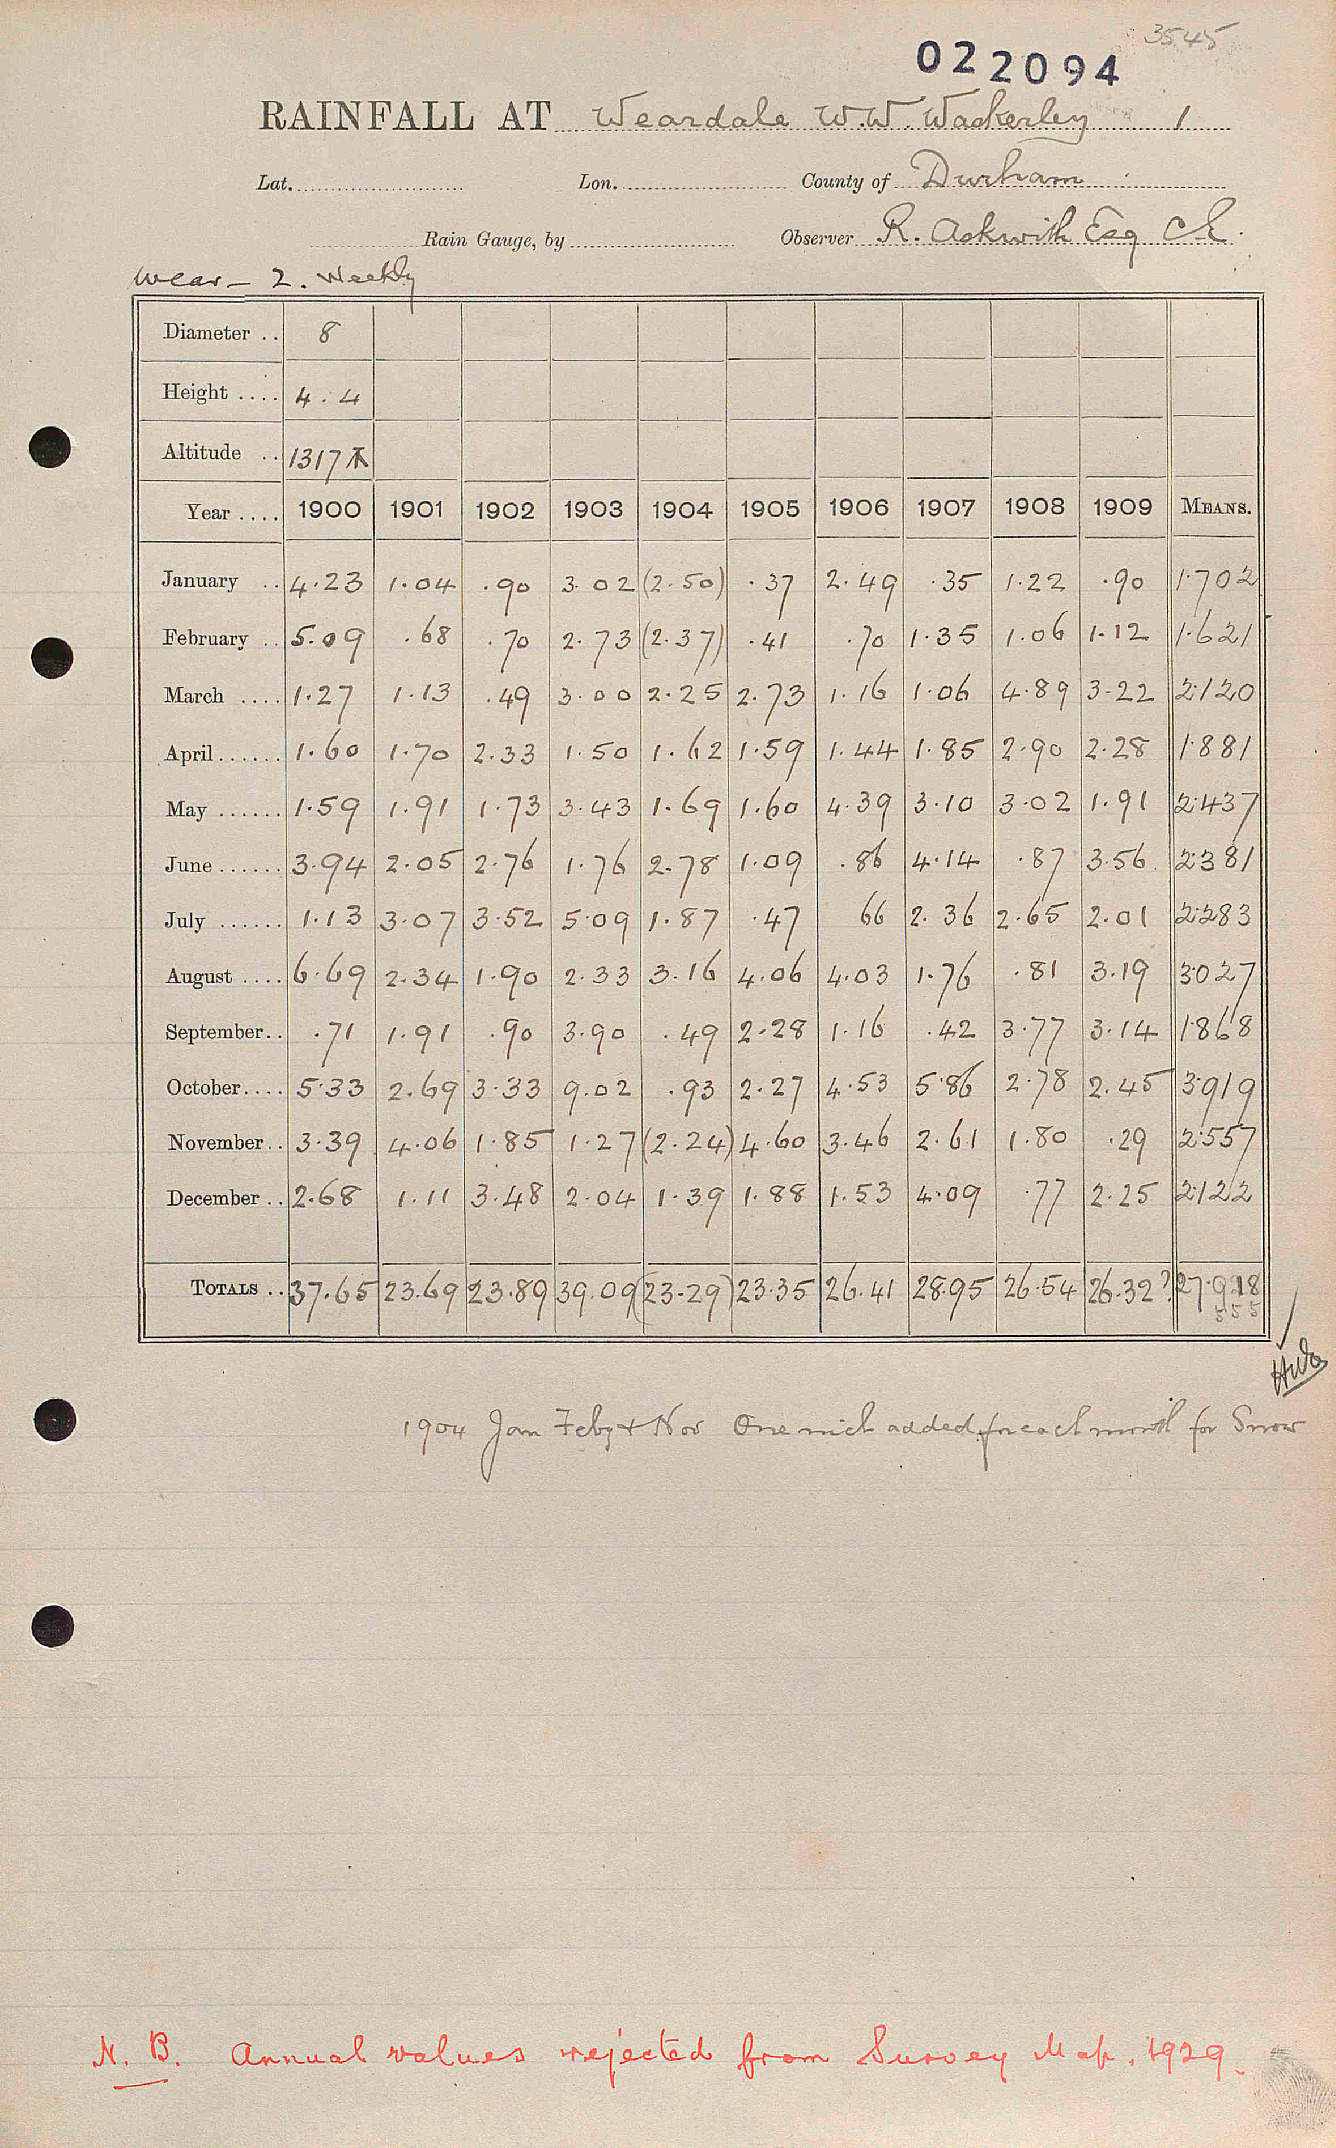 3545
022094
RAINFALL AT Weardale W.W. Wackerley 1
Lat. Lon. County of Durham
Rain Gauge, by Observer R. Askwith Esq CE.
Wear - 2. Weekly
Diameter .. 8
Height .... 4.4
Altitude .. 1317
Year .... 1900 1901 1902 1903 1904 1905 1906 1907 1908 1909 MEANS.
January .. 4.23 1.04 .90 3.02 (2.50) .37 2.49 .35 1.22 .90 1.702
February .. 5.09 .68 .70 2.73 (2.37) .41 .70 1.35 1.06 1.12 1.621
March .... 1.27 1.13 .49 3.00 2.25 2.73 1.16 1.06 4.89 3.22 2.120
April ...... 1.60 1.70 2.33 1.50 1.62 1.59 1.44 1.85 2.90 2.28 1.881
May ...... 1.59 1.91 1.73 3.43 1.69 1.60 4.39 3.10 3.02 1.91 2.437
June ...... 3.94 2.05 2.76 1.76 2.78 1.09 .86 4.14 .87 3.56 2.381
July ...... 1.13 3.07 3.52 5.09 1.87 .47 66 2.36 2.65 2.01 2.283
August .... 6.69 2.34 1.90 2.33 3.16 4.06 4.03 1.76 .81 3.19 3.027
September .. .71 1.91 .90 3.90 .49 2.28 1.16 .42 3.77 3.14 1.868
October .... 5.33 2.69 3.33 9.02 .93 2.27 4.53 5.86 2.78 2.45 3.919
November .. 3.39 4.06 1.85 1.27 (2.24) 4.60 3.46 2.61 1.80 .29 2.557
December .. 2.68 1.11 3.48 2.04 1.39 1.88 1.53 4.09 .77 2.25 2.122
TOTALS .. 37.65 23.69 23.89 39.09 (23.29) 23.35 26.41 28.95 26.54 26.32? 27.918
1904 Jan Feby + Nov One inch added for each month for Snow
N. B. Annual values rejected from Survey Map. 1929.